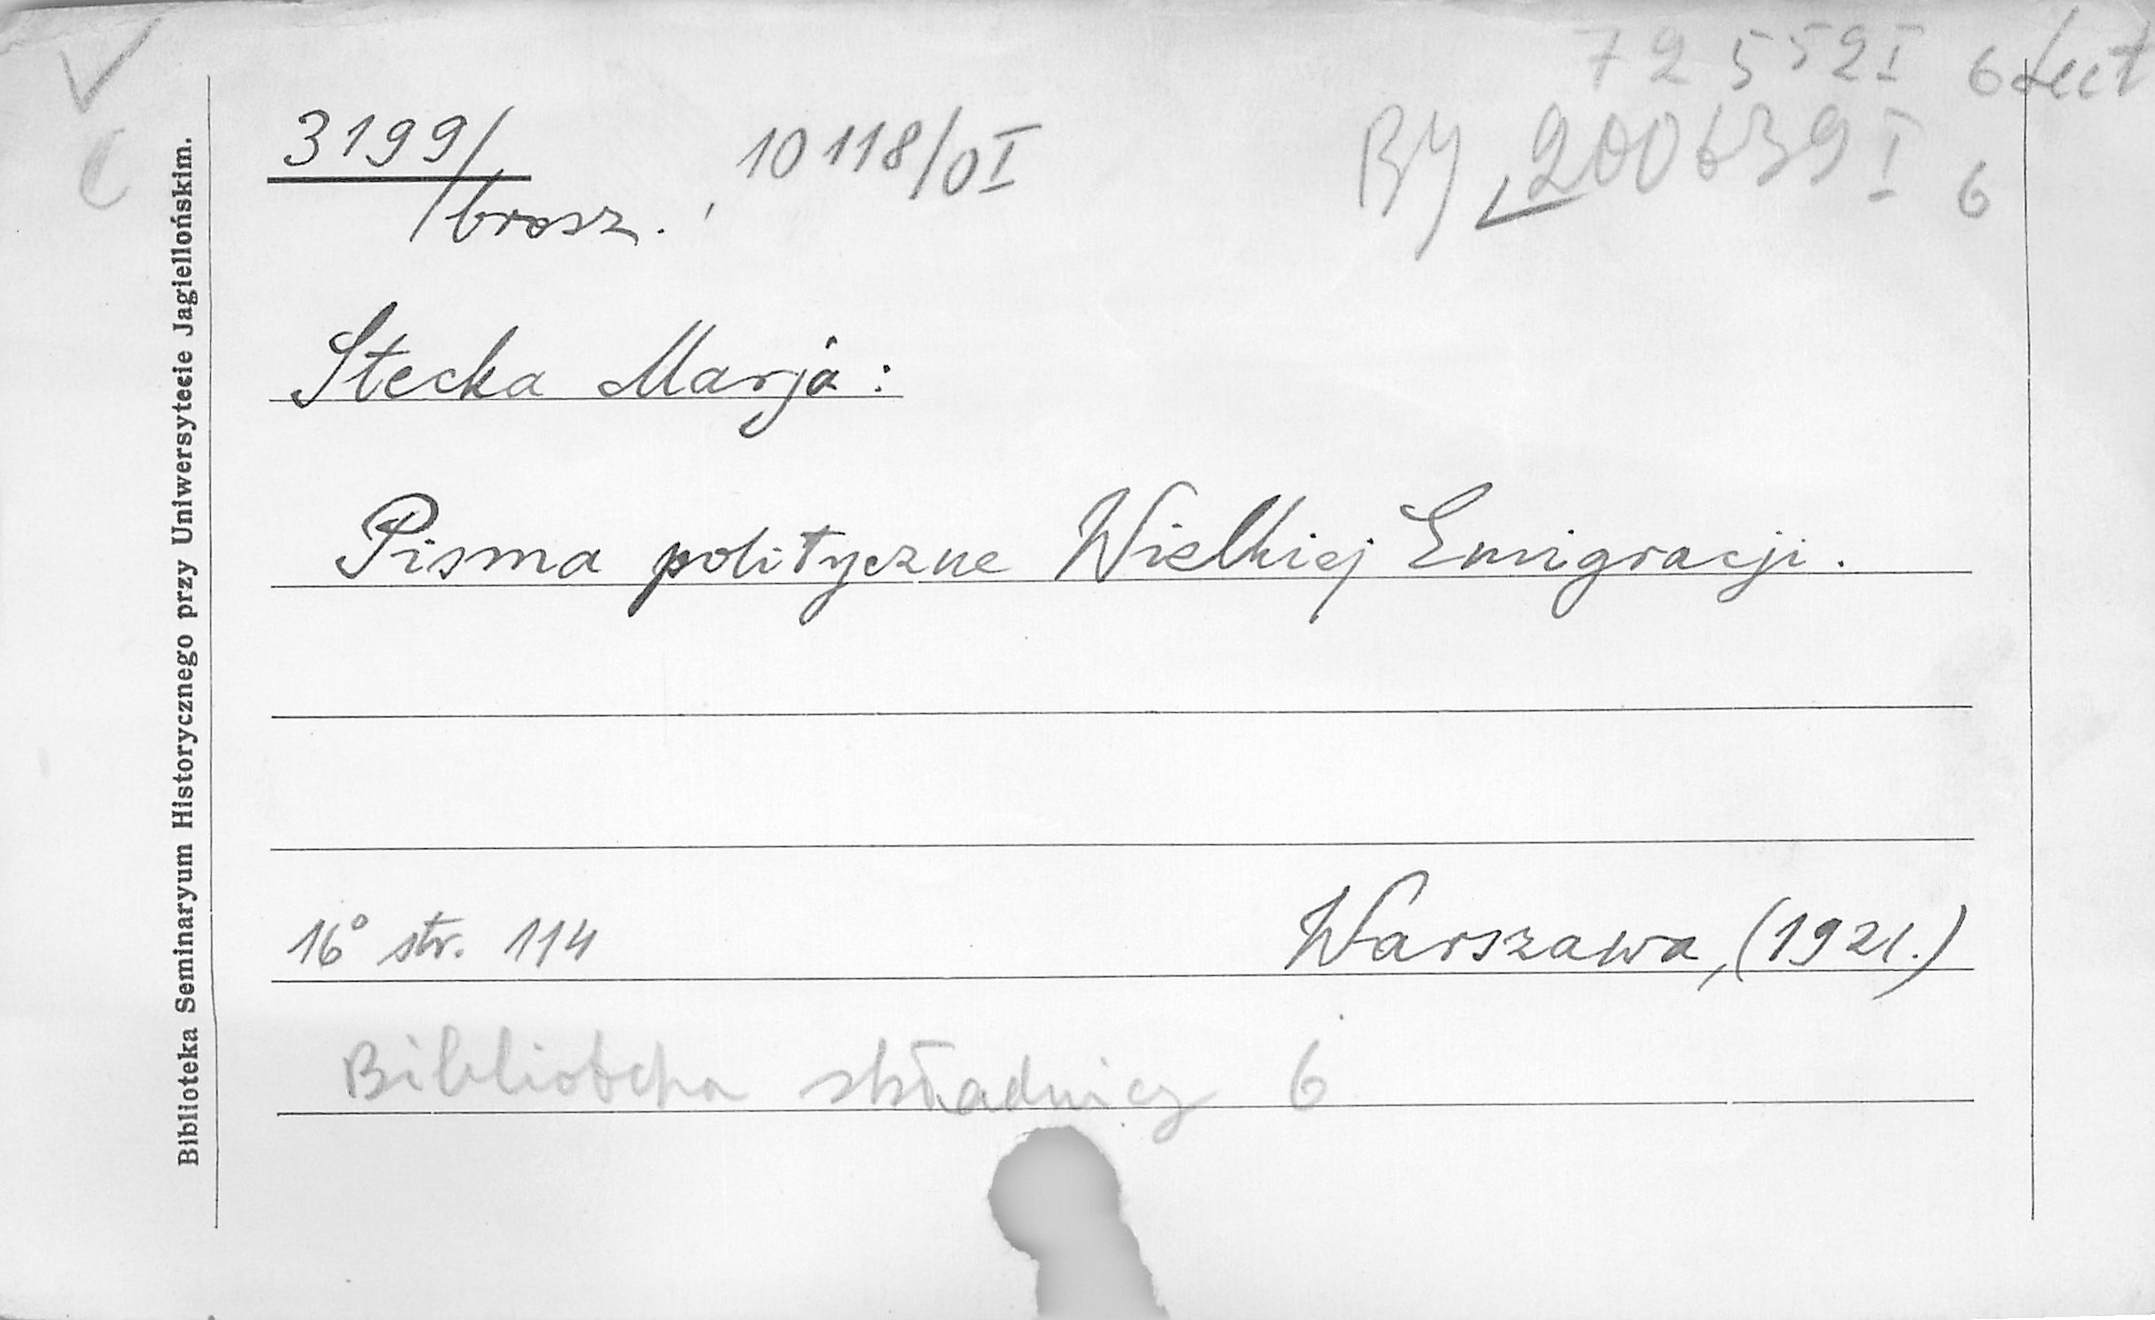 72552 I 6 Lect
3199/brosz. 10118/0I BJ 200639 I 6
Stecka Marja:
Pisma polityczne Wielkiej Emigracji.
16° str. 114 Warszawa, (1921.)
Biblioteka składnicy 6
Biblioteka Seminaryum Historycznego przy Uniwersytecie Jagiellońskim.